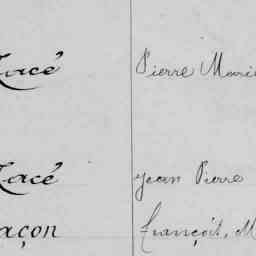 Macé Pierre Mari
Macé Jean Pierre
açon François, M